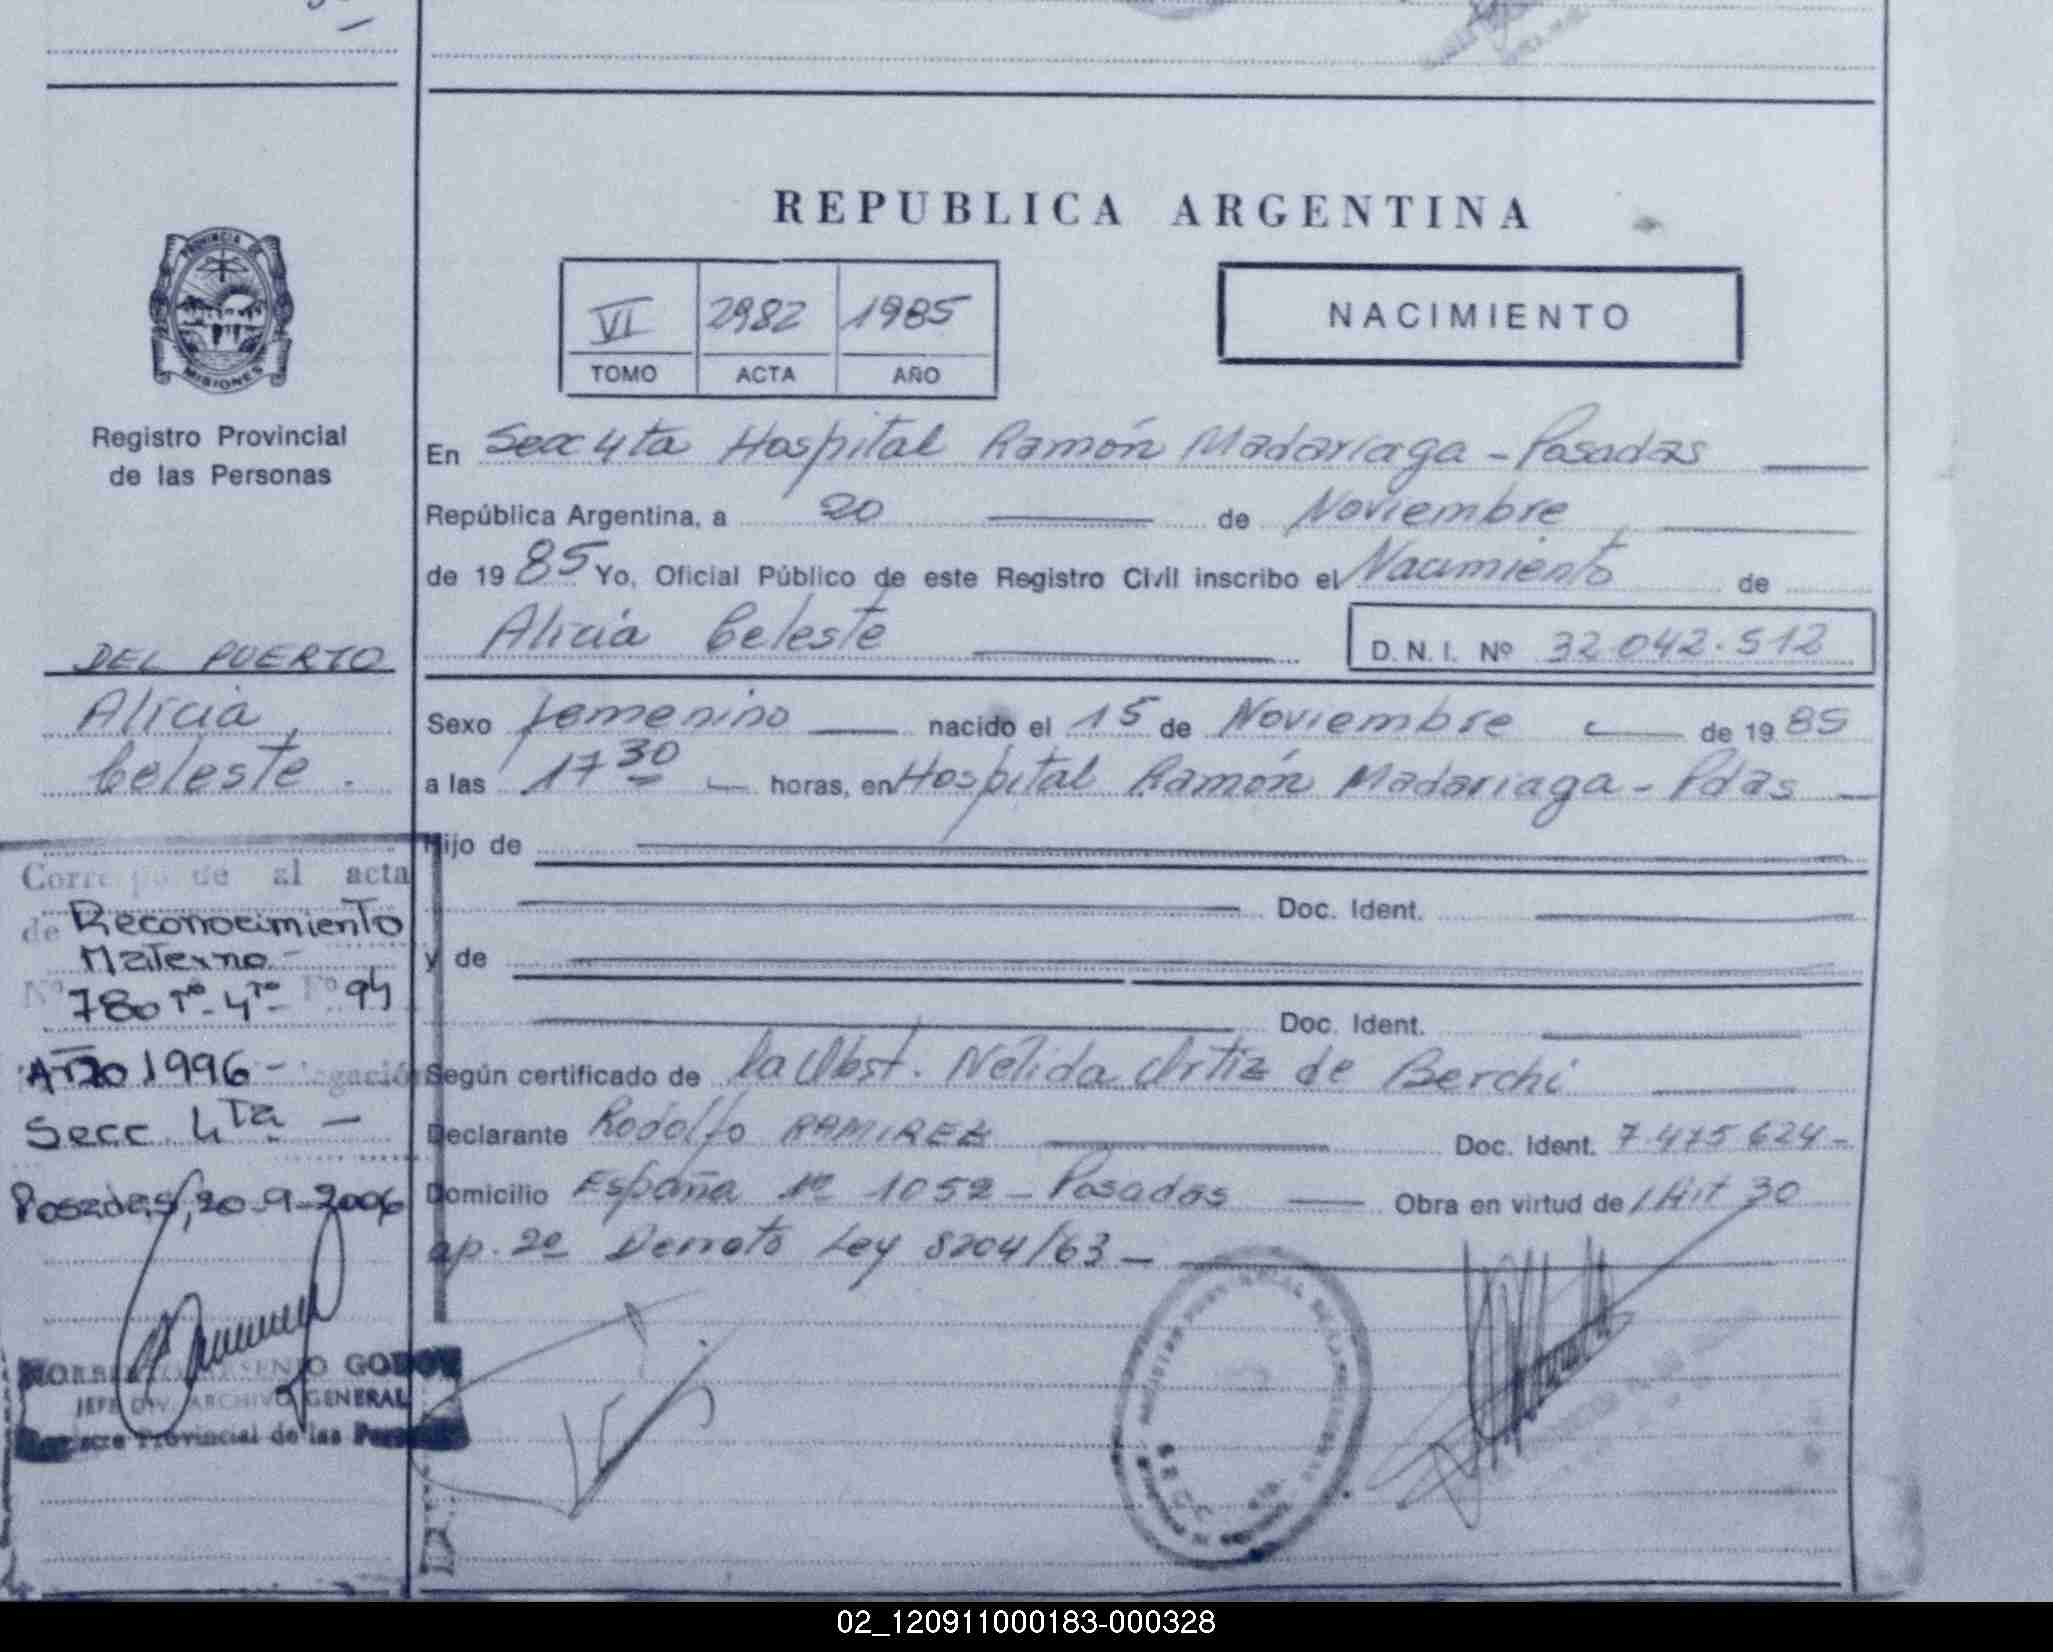 REPUBLICA ARGENTINA
PROVINCIA DE
MISIONES
Registro Provincial
de las Personas
VI 2982 1985
TOMO ACTA AÑO
NACIMIENTO
En Secc 4ta Hospital Ramón Madariaga - Posadas
República Argentina, a 20 de Noviembre
de 1985 Yo, Oficial Público de este Registro Civil inscribo el Nacimiento de
Alicia Celeste
D.N.I. Nº 32.042.512
DEL PUERTO
Alicia
Celeste.
Sexo femenino nacido el 15 de Noviembre de 1985
a las 17 30 horas, en Hospital Ramón Madariaga - Pdas
Hijo de
Doc. Ident.
y de
Doc. Ident.
Según certificado de la Obst. Nélida Ortiz de Berchi
Declarante Rodolfo RAMIREZ Doc. Ident. 7.475.624-
Domicilio España Nº 1052 - Posadas Obra en virtud de /Art 30
ap. 2º Decreto Ley 8204/63 -
Corresponde al acta
de Reconocimiento
Materno -
Nº 780 Tº 4to Fº 94
Año 1996 -
Secc 4ta -
Posadas, 20-9-2006
NORBERTO ARSENIO GODOY
JEFE DIV. ARCHIVO GENERAL
Registro Provincial de las Personas
02_120911000183-000328